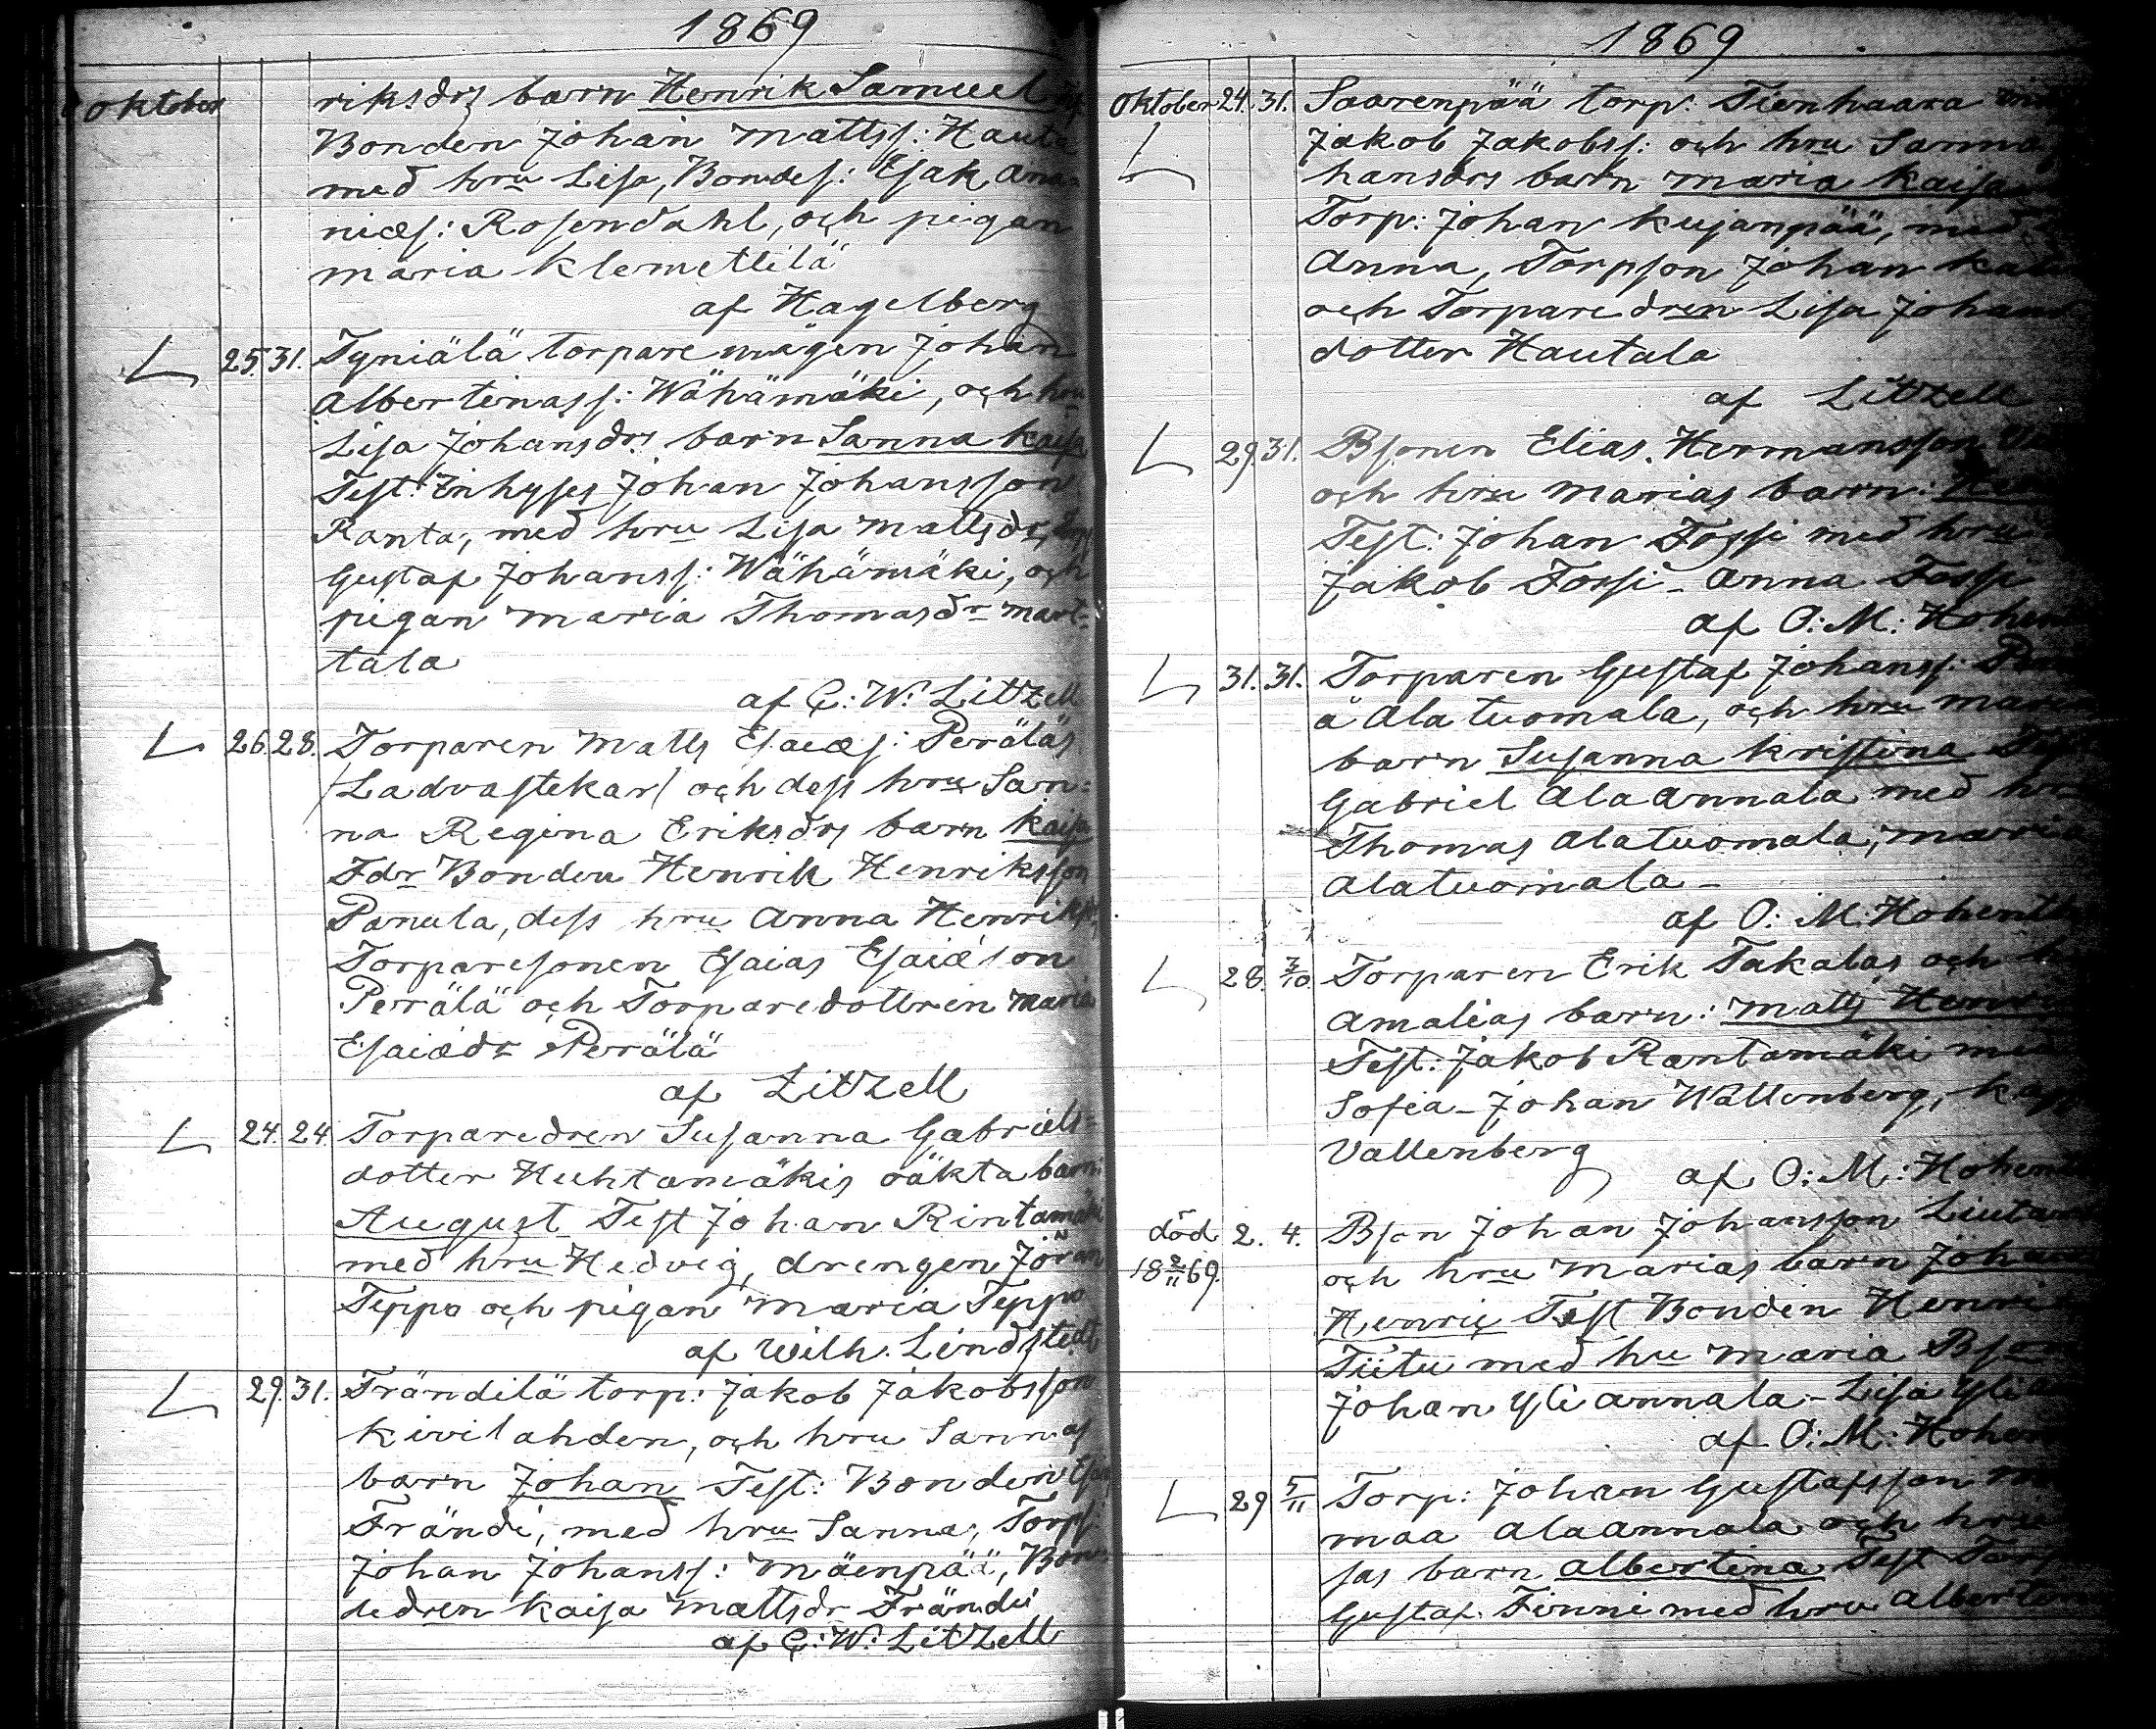 1869
oktober riksdrs barn Henrik Samuel
Bonden Johan Mattss: Hauta
med hru Lisa, Bondes: Esak Ana-
niæs: Rosendahl, och pigan
Maria Klemettilä
af Hagelberg
25. 31. Tyniälä torpare mågen Johan
Albertinass: Wähämäki, och hru
Lisa Johansdrs barn Sanna Kaisa
Test: Inhyses Johan Johansson
Ranta, med hru Lisa Mattsdr,
Gustaf Johanss: Wähämäki, och
pigan Maria Thomasdr Mart-
tala
af C: W: Litzell
26. 28. Torparen Matts Esaiæs: Peräläs
/Ladvastekar/ och dess hru San=
na Regina Eriksdrs barn Kaisa
Fdr Bonden Henrik Henriksson
Panula, dess hru Anna Henriksdr,
Torparesonen Esaias Esaiæson
Perälä och Torparedottren Maria
Esaiædr Perälä
af Litzell
24. 24 Torparedren Susanna Gabriels=
dotter Huhtamäkis oäkta barn:
August Test Johan Rintamäki
med hru Hedvig, drengen Jöran
Teppo och pigan Maria Teppo
af Wilh. Lindstedt
29. 31. Frändilä torp: Jakob Jakobsson
Kivilahden, och hru Sannas
barn Johan Test: Bonden Esak
Frändi, med hru Sanna, Torps:
Johan Johanss: Mäenpää, Bon-
dedren Kaisa Mattsdr Frändi
af C: W: Litzell
1869
Oktober 24. 31. Saarenpää torp: Tienhaara
Jakob Jakobss: och hru Sanna
hansdrs barn Maria Kaisa
Torp: Johan Kujanpää, med
Anna, Torpson Johan
och Torparedren Lisa Johans
dotter Hautala
af Litzell
29. 31. Bsonen Elias Hermansson
och hru Marias barn:
Test: Johan Fossi med hru
Jakob Fossi - Anna Fossi
af O: M: Hohen
31. 31. Torparen Gustaf Johanss:
å Alatuomala, och hru Maria
barn Susanna Kristina
Gabriel Alaannala med hru
Thomas Alatuomala, Maria
Alatuomala -
af O: M: Hohenth
28. 3/10 Torparen Erik Takalas och
Amalias barn: Matts Henri
Test: Jakob Rantamäki med
Sofia - Johan Wallenberg,
Vallenberg
af O: M: Hohen
död 2. 4. Bson Johan Johansson Liuta
18 2/11 69. och hru Marias barn Johan
Henric Test Bonden Henri
Tiitu med hru Maria Bson
Johan Yliannala - Lisa Yli
af O: M: Hohen
29 5/11 Torp: Johan Gustafsson
maa Alaannala och hru
sas barn Albertina Test Torp
Gustaf Finni med hru Albertin